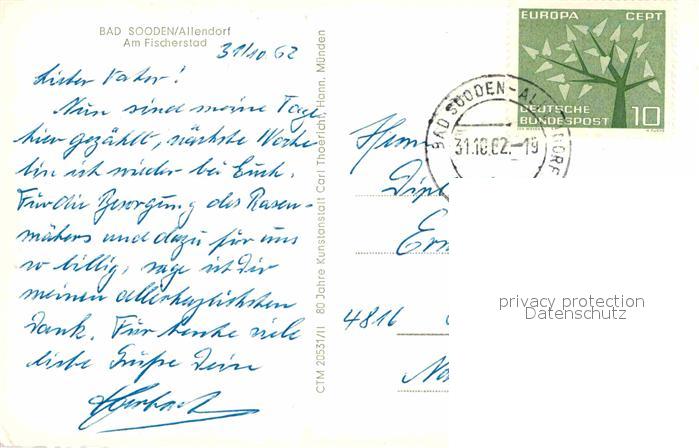 BAD SOODEN/Allendorf
Am Fischerstad
31/10. 62
Lieber Vater!
Nun sind meine Tage
hier gezählt, nächste Woche
bin ich wieder bei Euch.
Für die Besorgung des Rasen-
mähers und dazu für uns
so billig, sage ich Dir
meinen allerherzlichsten
Dank. Für heute viele
liebe Grüße Dein
CTM 20531/II 80 Jahre Kunstanstalt Carl Thoericht, Hann. Münden
EUROPA CEPT
DEUTSCHE
BUNDESPOST 10
BAD SOODEN-AL DORF
31.10.62.-19
Herrn
Dipl
Ern
4816
privacy protection
Datenschutz